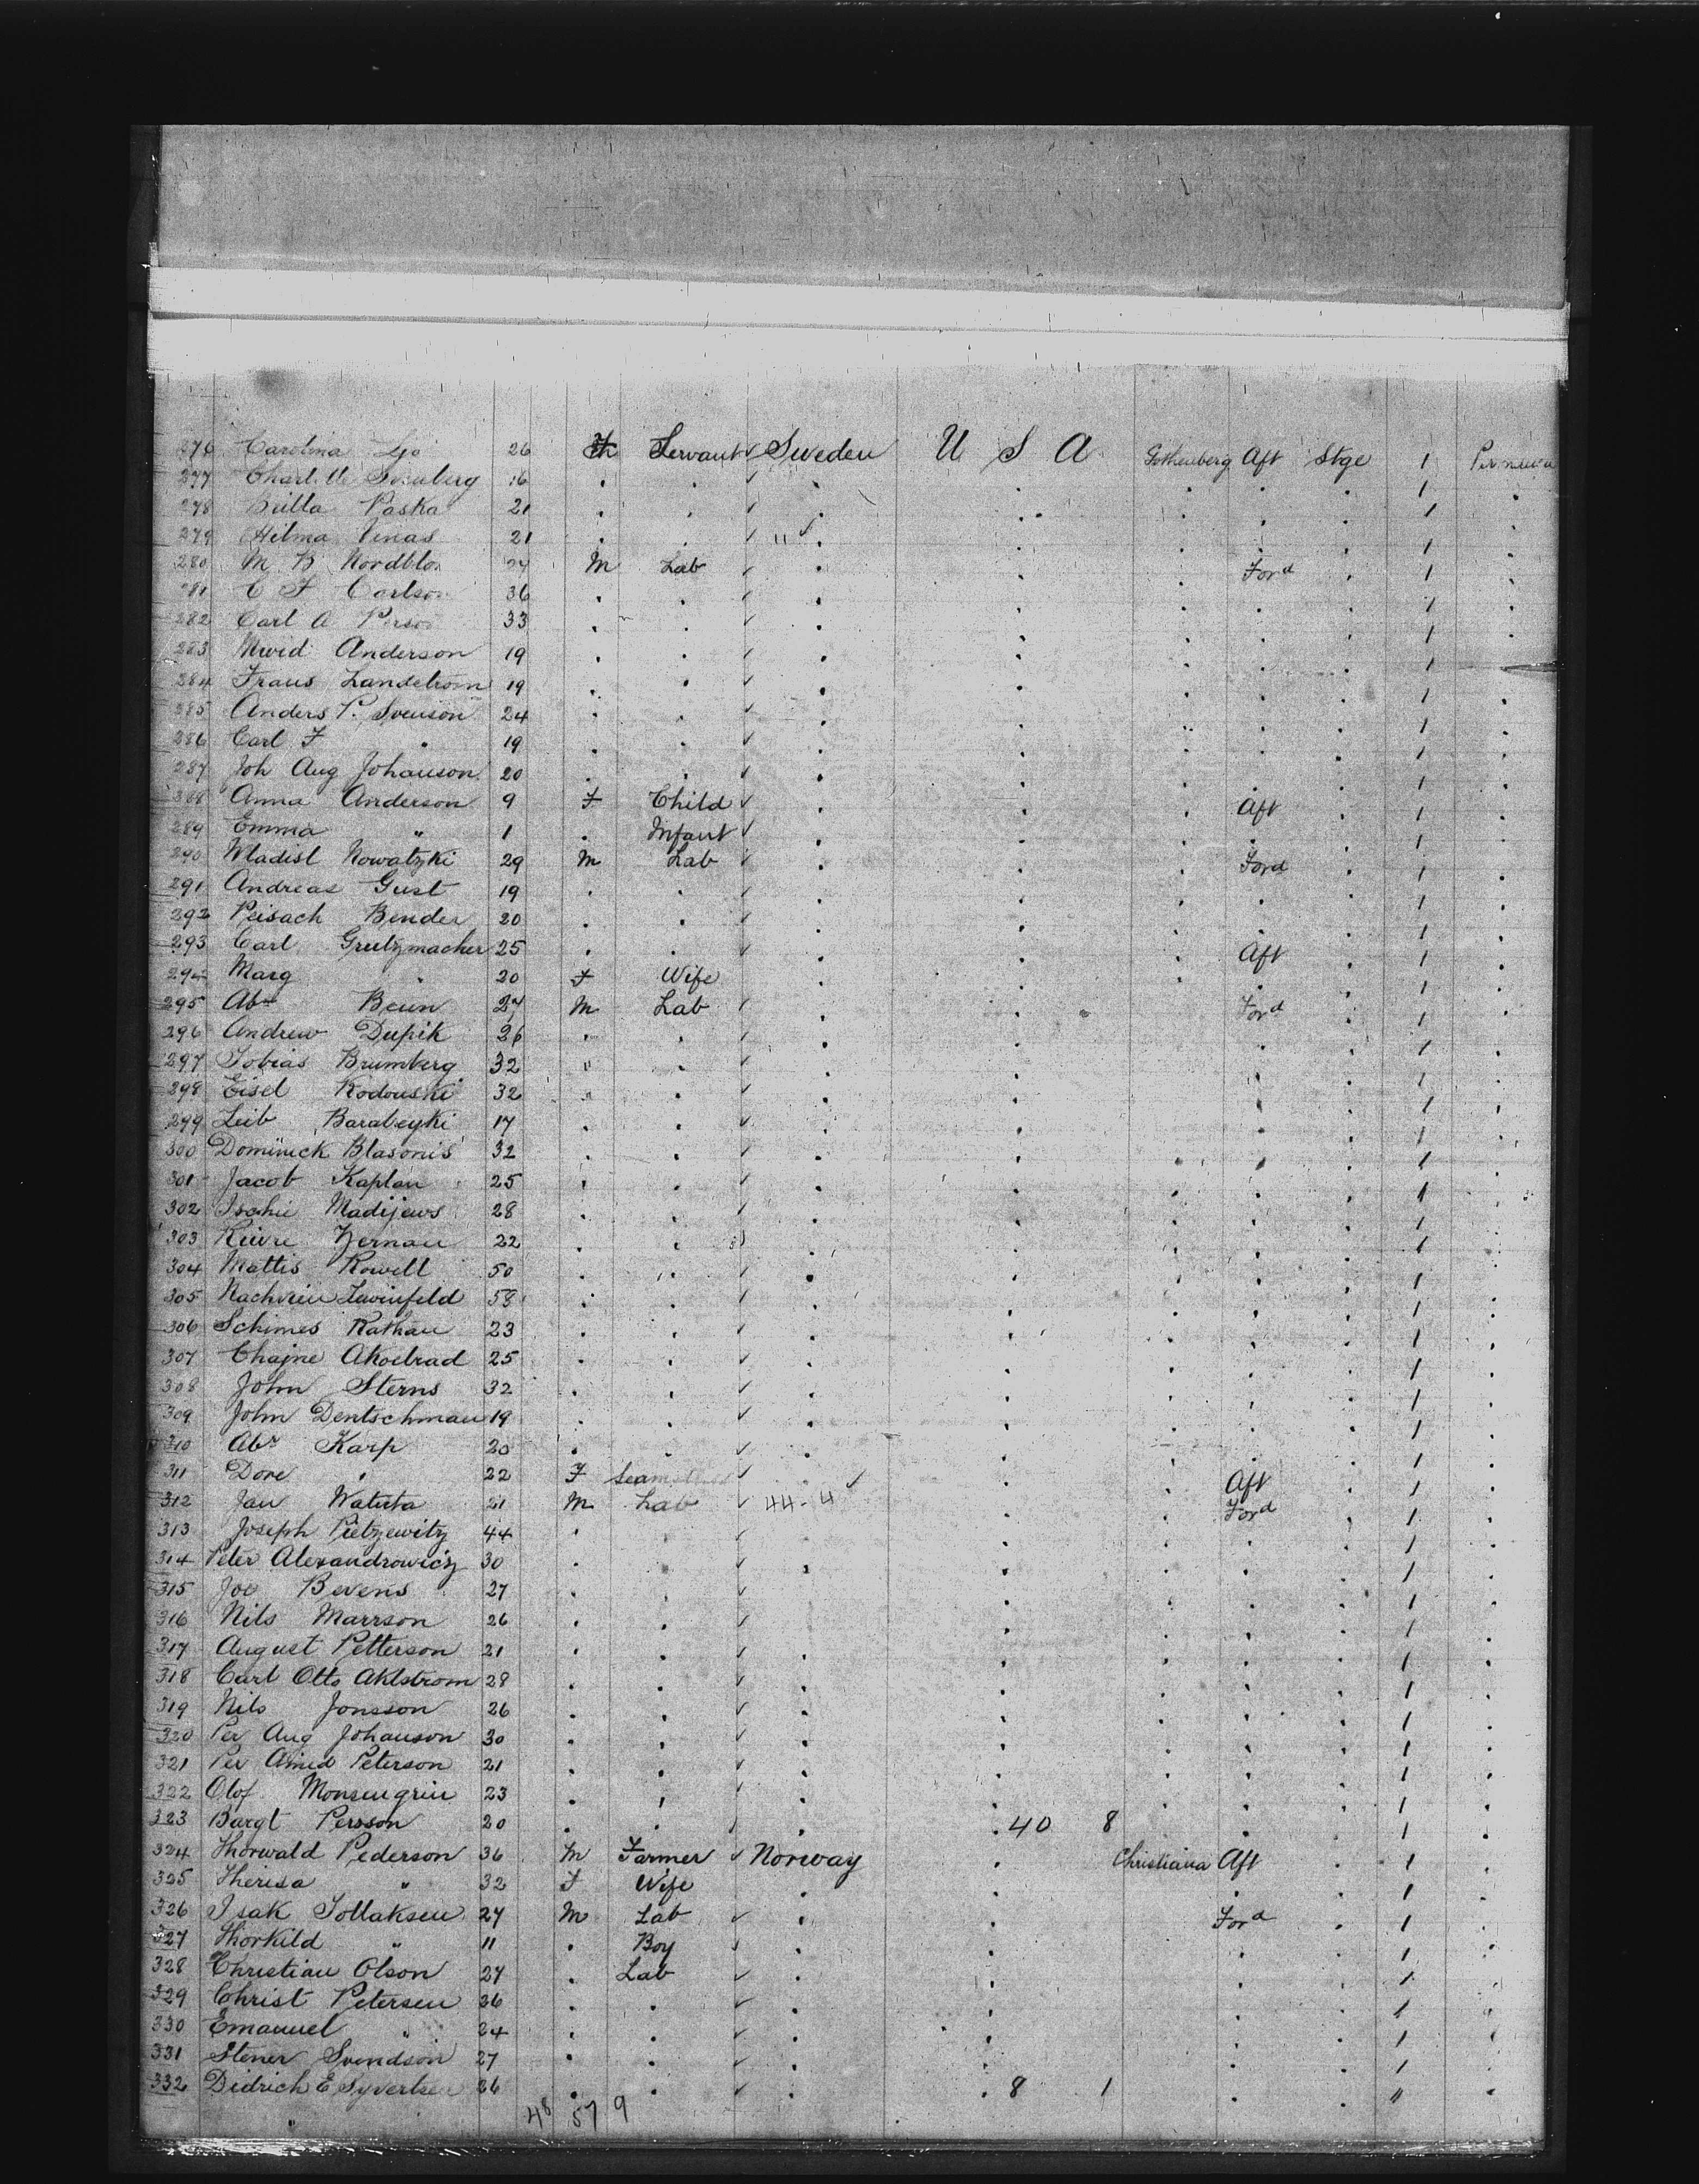 276 Carolina 26 Servant Sweden U S A Gothenberg Aft Stge 1
277 16 1
278 Britta Paska 21 1
279 Hilma 21 11 1
280 M B 27 M Lab Ford 1
281 C F Carlson 36 1
282 Carl A 33 1
283 Anderson 19 1
284 Frans Landstrom 19 1
285 Anders P. Svenson 24 1
286 Carl F " 19 1
287 Joh Aug Johanson 20 1
288 Anna Anderson 9 F Child Aft 1
289 Emma " 1 Infant 1
290 Wladisl Nowatzki 29 M Lab Ford 1
291 Andreas Gust 19 1
292 Peisach Bender 20 1
293 Carl Grutzmacher 25 Aft 1
294 Marg " 20 F Wife 1
295 Abm 27 M Lab Ford 1
296 Andrew Dupik 26 1
297 Tobias Brumberg 32 1
298 Eisel Kodouski 32 1
299 Leib Barabeyki 17 1
300 Dominick Blasonis 32 1
301 Jacob Kaplan 25 1
302 Madijews 28 1
303 22 1
304 Mattis Rowell 50 1
305 58 1
306 Schimes Rathau 23 1
307 Chajne 25 1
308 John Sterns 32 1
309 John Dentschman 19 1
310 Abr Karp 20 1
311 Dore " 22 F Aft 1
312 Jan Watuta 21 M Lab 44-4 Ford 1
313 Joseph Pietzewitz 44 1
314 Peter Alexandrowicz 30 1
315 Joe Bevens 27 1
316 Nils Marrson 26 1
317 August Petterson 21 1
318 Carl Otto Ahlstrom 28 1
319 Nils Jonsson 26 1
320 Per Aug Johanson 30 1
321 Per Peterson 21 1
322 Olof 23 1
323 Bargt Persson 20 40 8 1
324 Thorwald Pederson 36 M Farmer Norway Christiana Aft 1
325 Theresa " 32 F Wife 1
326 Isak Tollaksen 27 M Lab Ford 1
327 Thorkild " 11 Boy 1
328 Christian Olson 27 Lab 1
329 Christ Petersen 36 1
330 Emanuel " 24 1
331 Stener Svendson 27 1
332 Didrich E Syvertsen 26 8 1 "
48 57 9